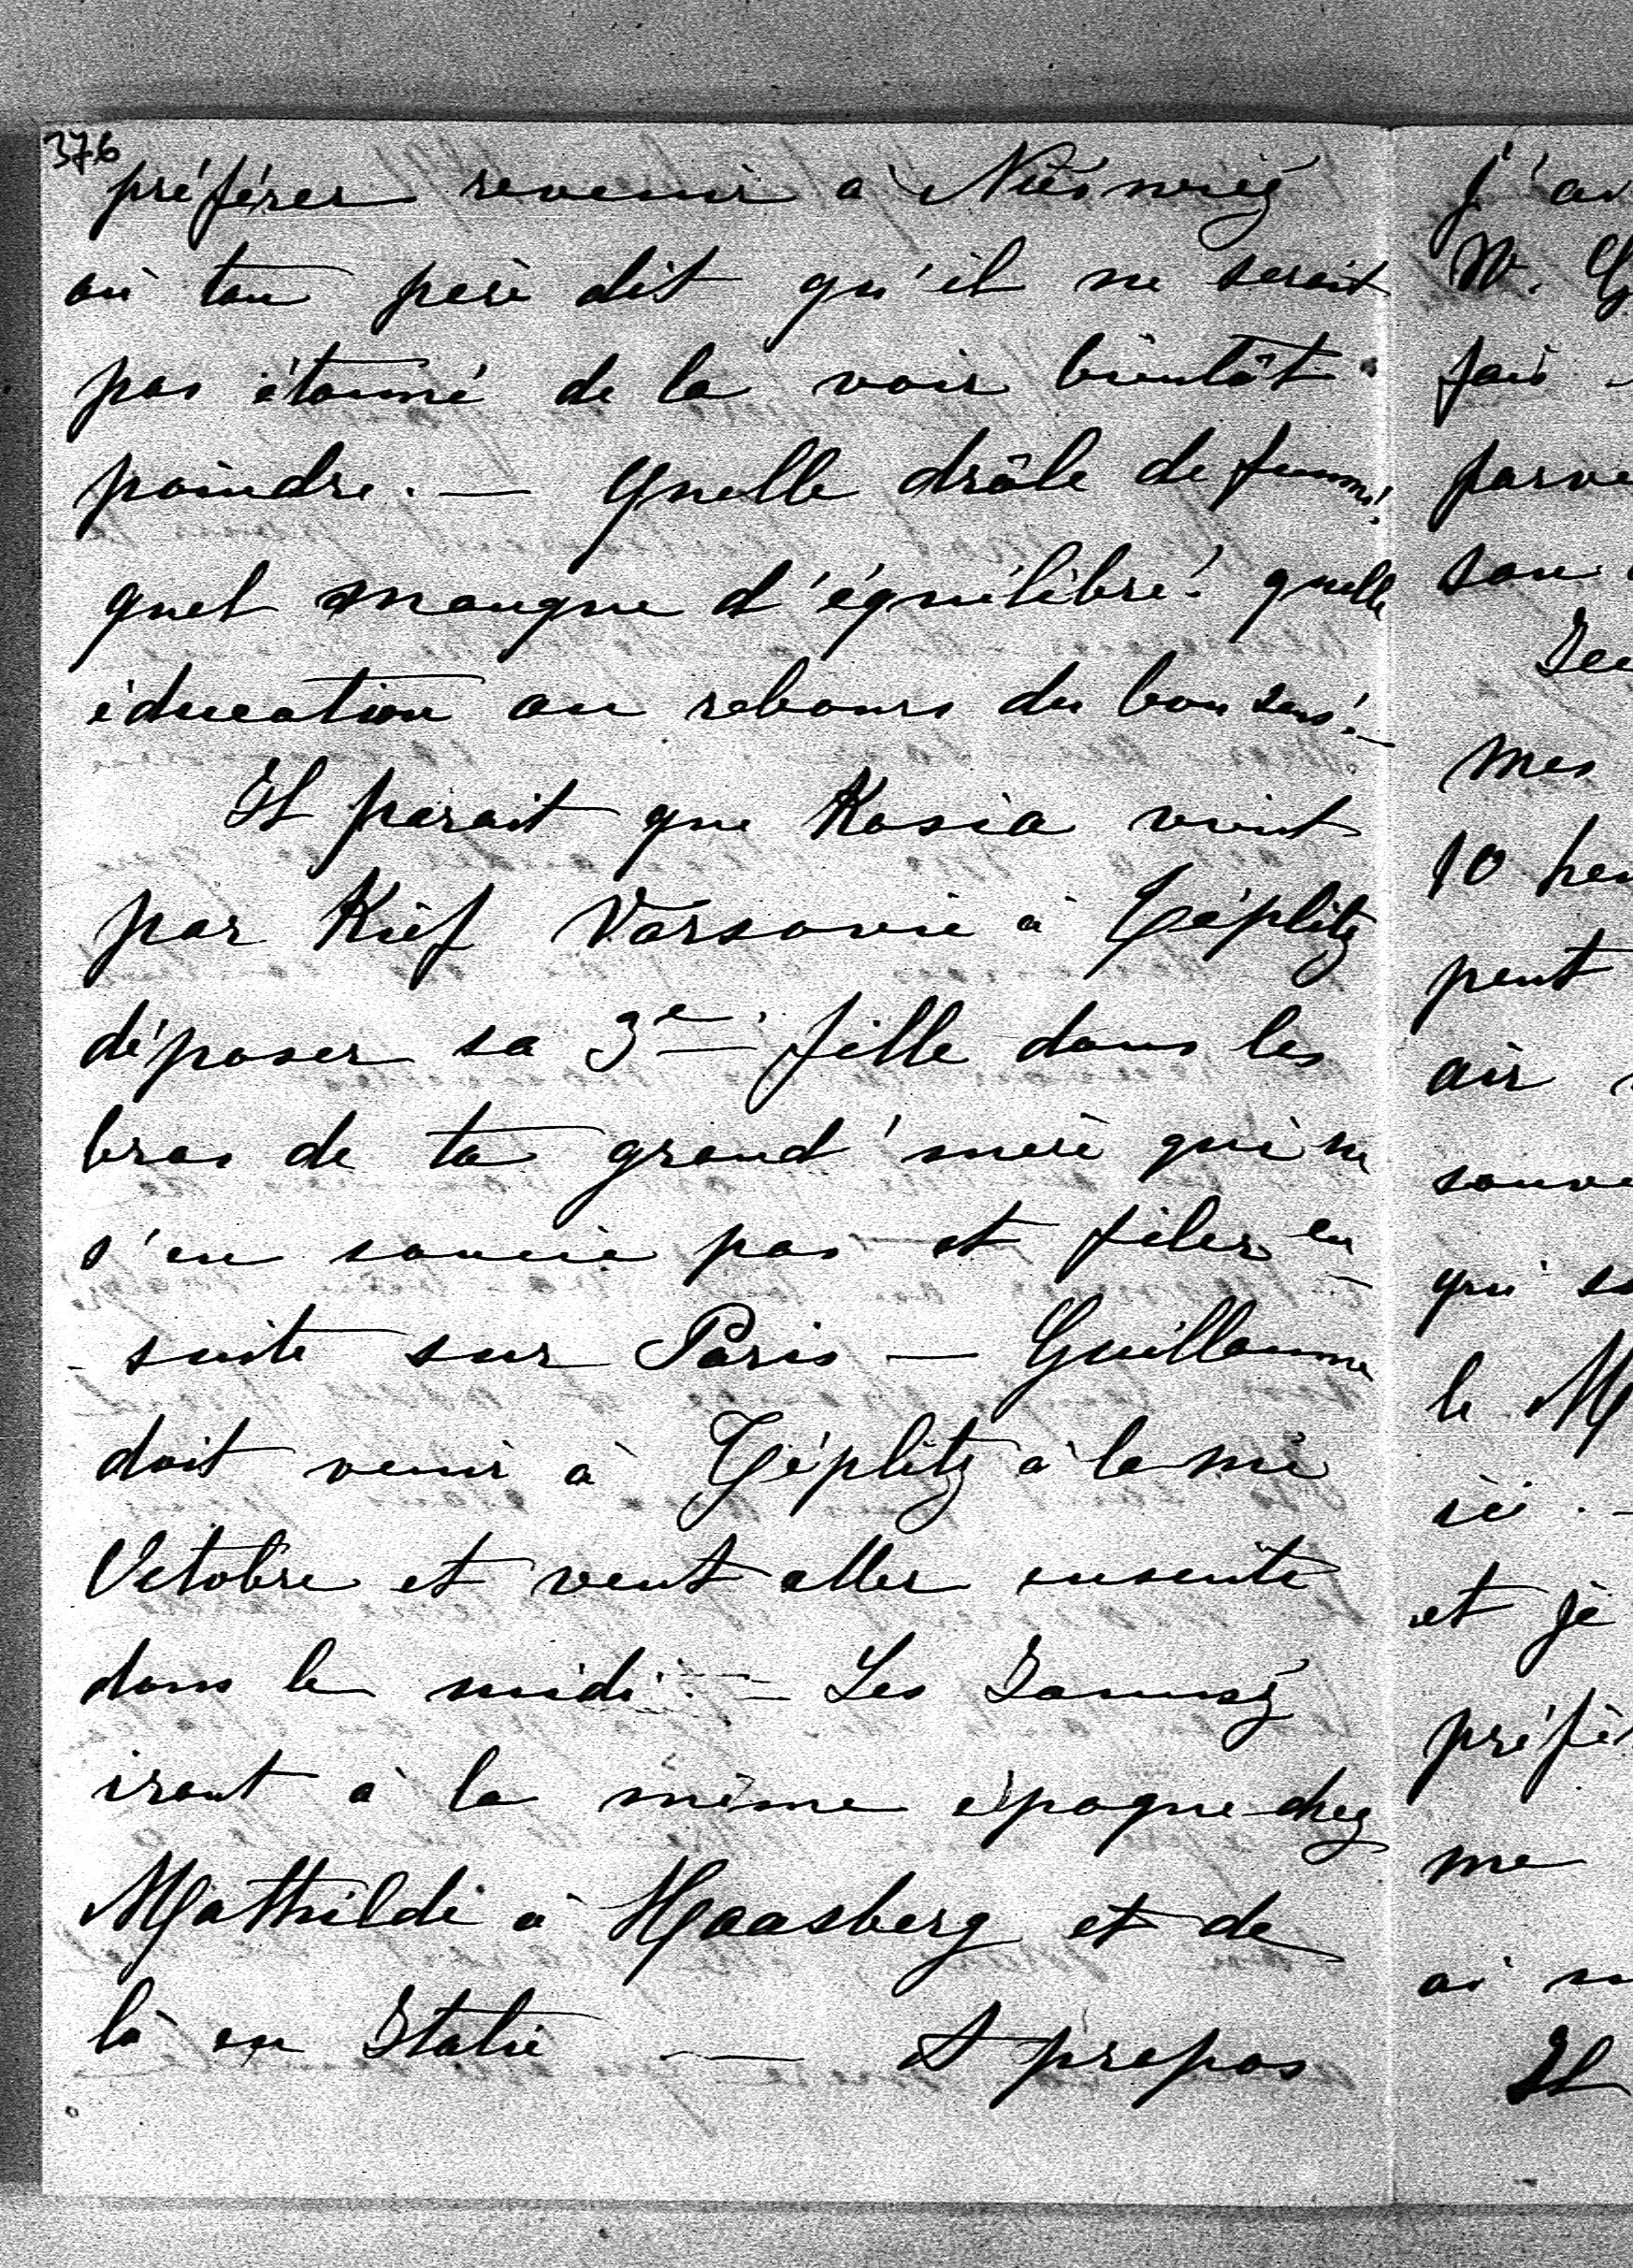 376
préférer revenir à Nieśwież
où ton père dit qu'il ne serait
pas étonné de la voir bientôt
poindre. — Quelle drôle de femme!
quel manque d'équilibre! quelle
éducation au rebours du bon sens! —
Il parait que Rosia vient
par Kief Varsovie à Téplitz
déposer sa 3e fille dans les
bras de ta grand'mère qui ne
s'en soucie pas et filer en
- suite sur Paris — Guillaume
doit venir à Téplitz à la mi
Octobre et veut aller ensuite
dans le midi. — Les Janusz
iront à la même époque chez
Mathilde à Haasberg et de
là en Italie — A propos
j'av
W. G
fais
parve
son
mes
10 heu
peut
air
souve
qui s
le M
ici. —
et je
préfèr
me
ai m
Il